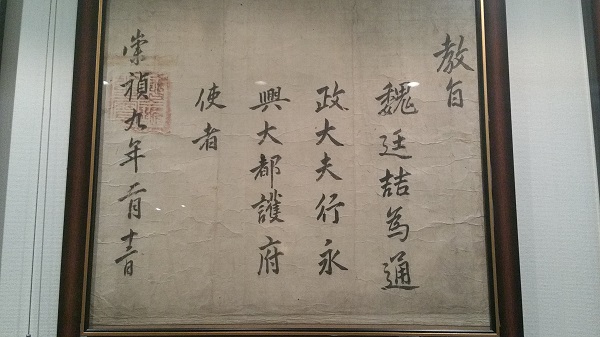 教旨
魏廷喆為通
政大夫行永
興大都護府
使者
崇禎九年二月十三日